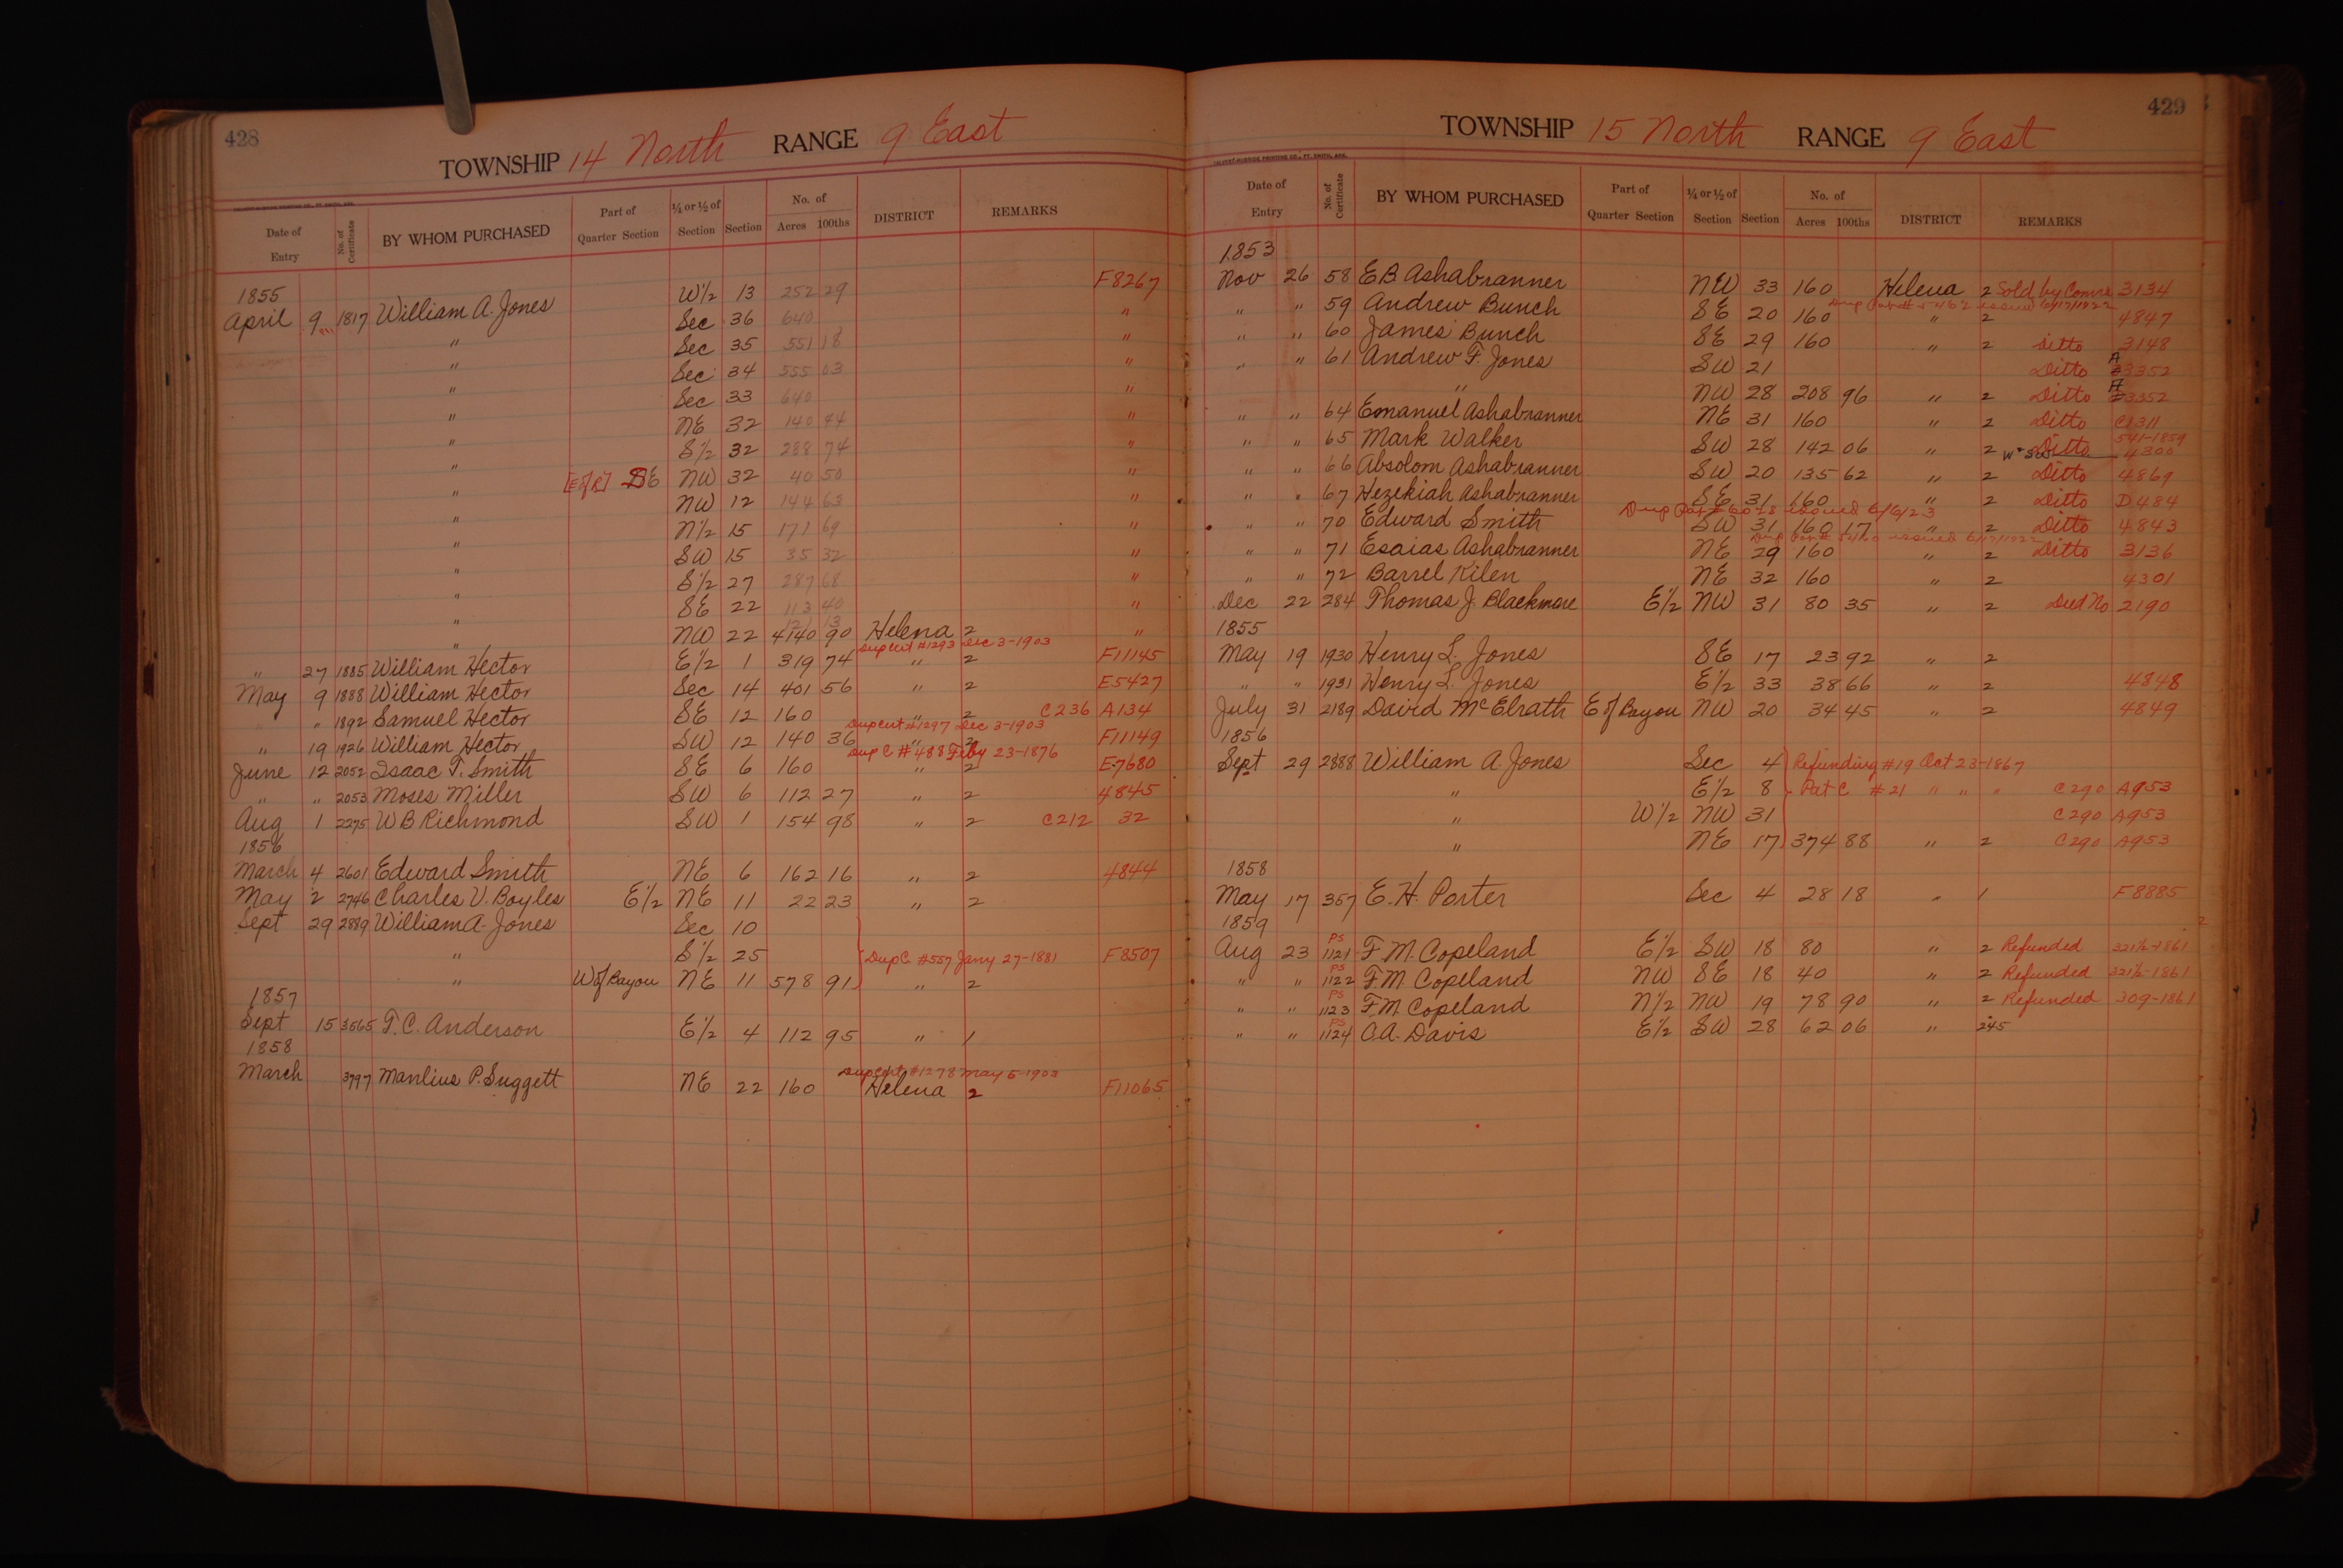 428
TOWNSHIP 14 North RANGE 9 East
Date of Entry No. of Certificate BY WHOM PURCHASED Part of Quarter Section ¼ or ½ of Section Section No. of Acres 100ths DISTRICT REMARKS
1855 W½ 13 252 29 F8267
April 9 1817 William A. Jones Sec 36 640 "
" Sec 35 551 18 "
" Sec 34 555 03 "
" Sec 33 640 "
" NE 32 140 44 "
" S½ 32 288 74 "
" SE NW 32 40 50 "
" NW 12 144 63 "
" N½ 15 171 69 "
" SW 15 35 32 "
" S½ 27 287 68 "
" SE 22 113 40 "
121 13
" NW 22 4140 90 Helena 2 "
Dup Cert #1293 Dec 3-1903
" 27 1885 William Hector E½ 1 319 74 " 2 F11145
May 9 1888 William Hector Sec 14 401 56 " 2 E5427
" " 1892 Samuel Hector SE 12 160 " 2 C236 A134
Dup Cert #1297 Dec 3-1903
" 19 1926 William Hector SW 12 140 36 " 2 F11149
Dup C #488 Feby 23-1876
June 12 2052 Isaac T. Smith SE 6 160 " 2 E7680
" " 2053 Moses Miller SW 6 112 27 " 2 4845
Aug 1 2275 W B Richmond SW 1 154 98 " 2 C212 32
1856
March 4 2601 Edward Smith NE 6 162 16 " 2 4844
May 2 2746 Charles V. Boyles E½ NE 11 22 23 " 2
Sept 29 2889 William A. Jones Sec 10
" S½ 25 Dup C. #557 Jany 27-1881 F8507
" W of Bayou NE 11 578 91 " 2
1857
Sept 15 3565 T. C. Anderson E½ 4 112 95 " 1
1858
Dup Cert #1278 May 5-1903
March 3797 Manlius P. Suggett NE 22 160 Helena 2 F11065
429
TOWNSHIP 15 North RANGE 9 East
Date of Entry No. of Certificate BY WHOM PURCHASED Part of Quarter Section ¼ or ½ of Section Section No. of Acres 100ths DISTRICT REMARKS
1853
Nov 26 58 E B Ashabranner NW 33 160 Helena 2 Sold by Comrs 3134
" " 59 Andrew Bunch SE 20 160 " 2 4847
" " 60 James Bunch SE 29 160 " 2 Ditto 3148
" " 61 Andrew F. Jones SW 21 Ditto A 3352
" NW 28 208 96 " 2 Ditto A 3352
" " 64 Emanuel Ashabranner NE 31 160 " 2 Ditto C1311
541-1859
" " 65 Mark Walker SW 28 142 06 " 2 Ditto 4300
" " 66 Absolom Ashabranner SW 20 135 62 " 2 Ditto 4869
" " 67 Hezekiah Ashabranner SE 31 160 " 2 Ditto D484
issued 6/6/23
" " 70 Edward Smith SW 31 160 17 " 2 Ditto 4843
" " 71 Esaias Ashabranner NE 29 160 " 2 Ditto 3136
" " 72 Barrel Kilen NE 32 160 " 2 4301
Dec 22 284 Thomas J. Blackmore E½ NW 31 80 35 " 2 Deed No 2190
1855
May 19 1930 Henry L. Jones SE 17 23 92 " 2
" " 1931 Henry L. Jones E½ 33 38 66 " 2 4848
July 31 2189 David McElrath E of Bayou NW 20 34 45 " 2 4849
1856
Sept 29 2888 William A. Jones Sec 4 Refunding #19 Oct 23-1867
" E½ 8 Pat C #21 " " " C290 A953
" W½ NW 31 C290 A953
" NE 17 374 88 " 2 C290 A953
1858
May 17 357 E. H. Porter Sec 4 28 18 " 1 F8885
1859
Aug 23 PS 1121 F. M. Copeland E½ SW 18 80 " 2 Refunded 321½-1861
" " PS 1122 F. M. Copeland NW SE 18 40 " 2 Refunded 321½-1861
" " PS 1123 F. M. Copeland N½ NW 19 78 90 " 2 Refunded 309-1861
" " PS 1124 O. A. Davis E½ SW 28 62 06 " 245